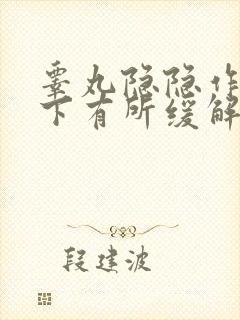 睾丸隐隐作
下有所缓解
段建波